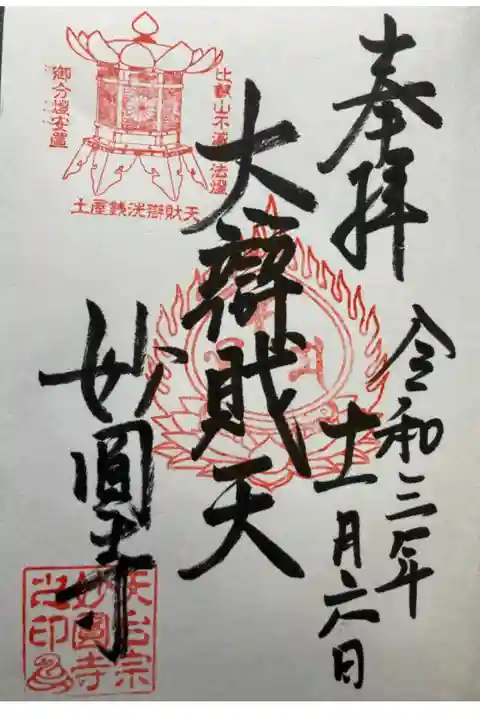 奉拝
令和三年
十一月六日
大辯財天
妙圓寺
比叡山不滅
法燈
御分燈安置
土屋銭洗辯財天
天台宗
妙圓寺
之印